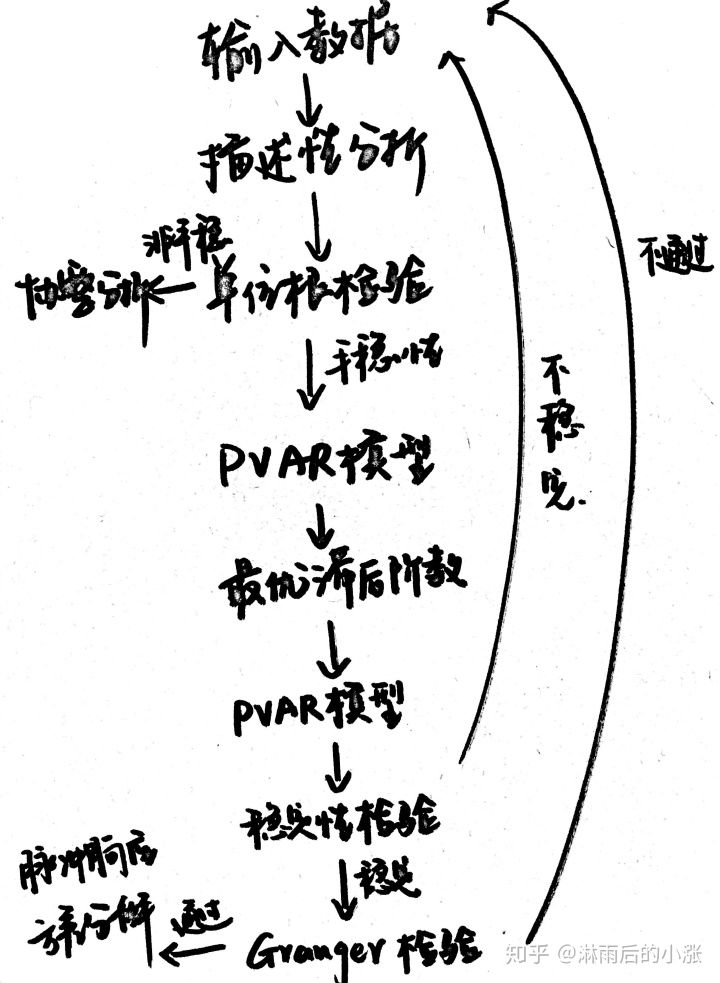 输入数据
描述性分析
非平稳
协整分析
单位根检验
平稳性
不通过
不稳定.
PVAR模型
最优滞后阶数
PVAR模型
稳定性检验
稳定
脉冲响应
方差分解
通过
Granger 检验
知乎 @淋雨后的小涨